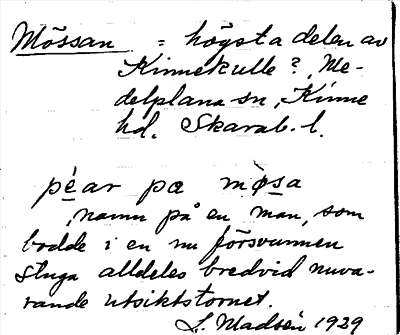 Mössan = högsta delen av
Kinnekulle?, Me-
delplana sn, Kinne
hd. Skarab. l.
pėar pα mø̣sa
, namn på en man, som
bodde i en nu försvunnen
stuga alldeles bredvid nuva-
rande utsiktstornet.
L. Madsén 1929